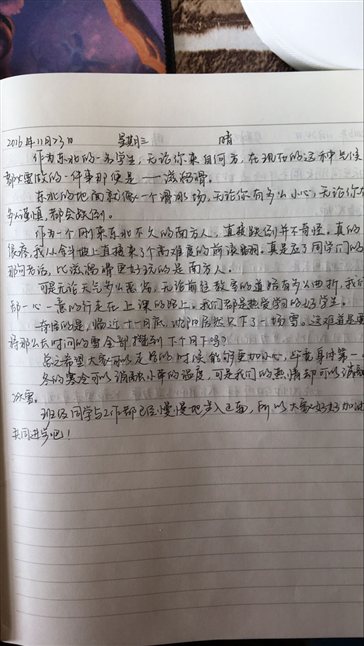 2016年11月23日 星期三 晴
作为东北的一名学生,无论你来自何方,在现在的这种气候
都必需做的一件事那便是——滋粑滑。
东北的地面就像一个滑冰场,无论你有多么小心,无论你有
多么谨慎,都会跌倒。
作为一个刚来东北不久的南方人,直接跌倒并不奇怪。真的
很疼,我从台地上直接来了个高难度的前滚翻。真是应了同学们的
那句方话,比滋溜滑更好玩的是南方人。
可是无论天气多么恶劣,无论前往教室的道路有多么曲折,我们
却一心一意的行走在上课的路上。我们都是热爱学习的好学生。
奇怪的是,临近十一月底,沈阳居然只下了一场雪。这难道是要
将那么长时间的雪全部攒到下个月下吗?
总之希望大家可以走路的时候能够更加小心,毕竟身体第一
冬的寒冷可以消融水年的温度,可是我们的热情却可以溶融
冰雪。
班级同学与工作都已经慢慢地步入正面,所以大家好好加油
共同进步吧!